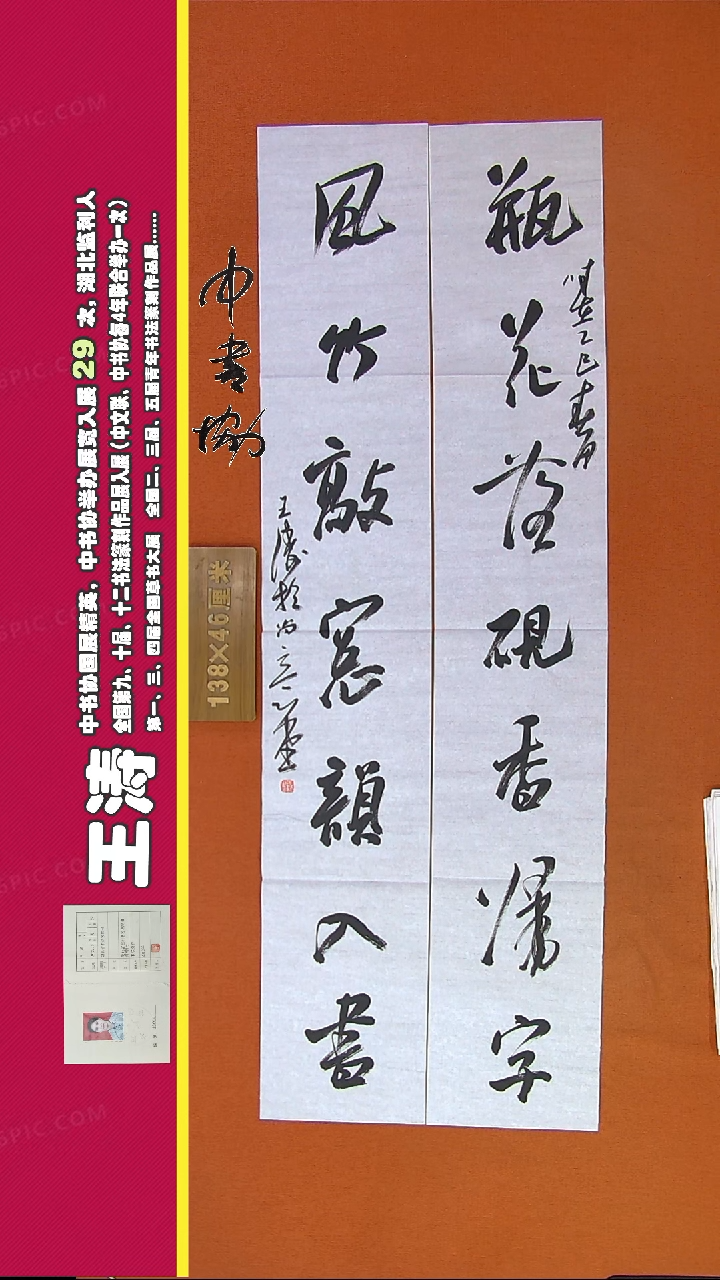 瓶花落硯香歸字
風竹敲窻韻入書
時在乙巳春月
王濤於尚意書屋
中书协
138×46厘米
王涛
中书协国展精英,中书协举办展览入展 29 次,湖北监利人
全国第九、十届、十二书法篆刻作品展入展(中文联、中书协每4年联合举办一次)
第一、三、四届全国草书大展 全国二、三届、五届青年书法篆刻作品展......